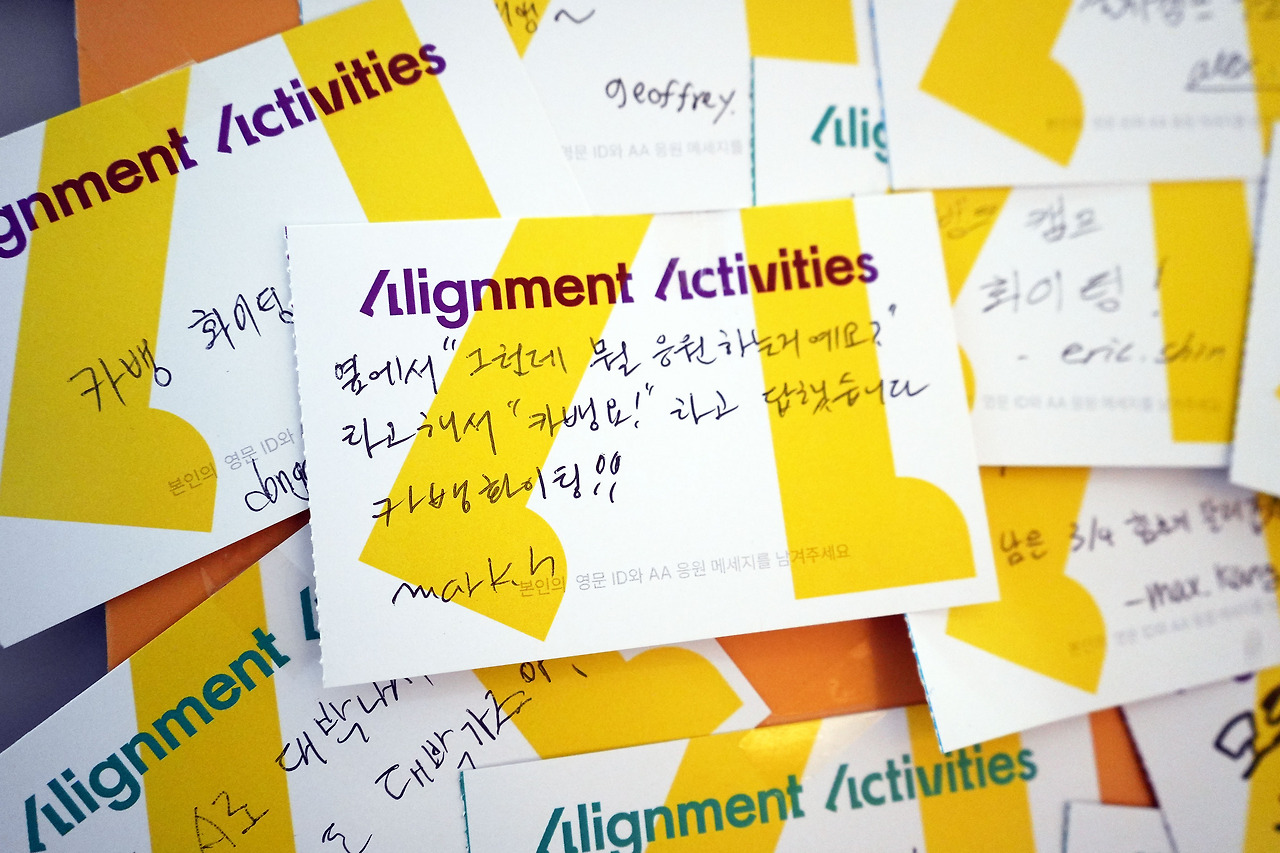 geoffrey.
영문 ID와 AA 응원 메세지를
Alignment Activities
카뱅 화이팅
본인의 영문 ID와
Alig
캠프
화이팅!
- eric.shin
영문 ID와 AA 응원 메세지를 남겨주세요
Alignment Activities
옆에서 "그런데 뭘 응원하는거예요?"
라고해서 "카뱅요!" 라고 답했습니다
카뱅화이팅!!
mark.h
본인의 영문 ID와 AA 응원 메세지를 남겨주세요
남은 3/4
- max.
Alignment
대박나
대박가즈아!
Alignment Activities